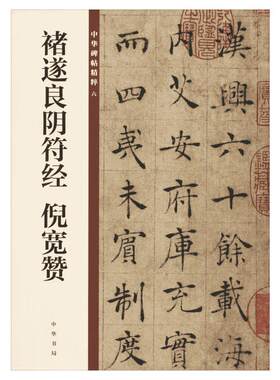 中华碑帖精粹 六
褚遂良阴符经 倪宽赞
中华书局
漢興六十餘載海
内艾安府庫充實
四夷未賓制度